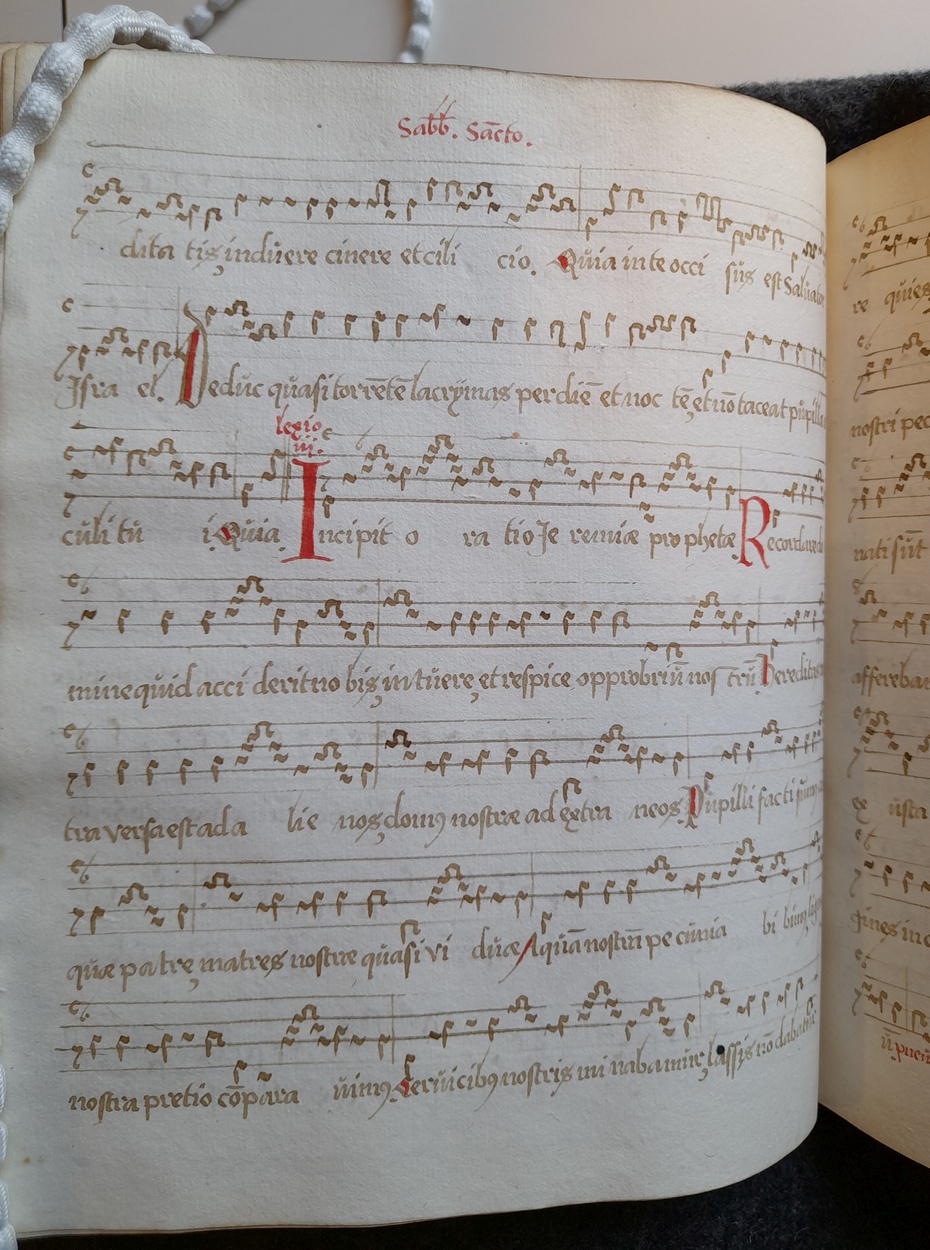 Sabb. Sācto.
dita tis induere cinere et cili cio. Quia in te occi sus est Salvator
Isra el. Deduc quasi torrētē lacrymas per diē et noc tē, et nō taceat pupilla
lexio
iii.
culi tu i. Quia. Incipit o ra tio Je remiæ prophetæ Recordare
mine quid acci derit no bis, intuere, et respice opprobriū nos trū Hereditas
tra versa est ad a lie nos, domꝰ nostræ ad extra neos Pupilli facti sumus
quæ patre, matres nostræ quasi vi duæ Aquā nostrā pe cunia bi bim
nostra pretio cōpara vimꝰ Cervicibꝰ nostris mi nabamur, lassis nō dabatur
re quies
nostri pec
nati sūt
afferebam
ex usta